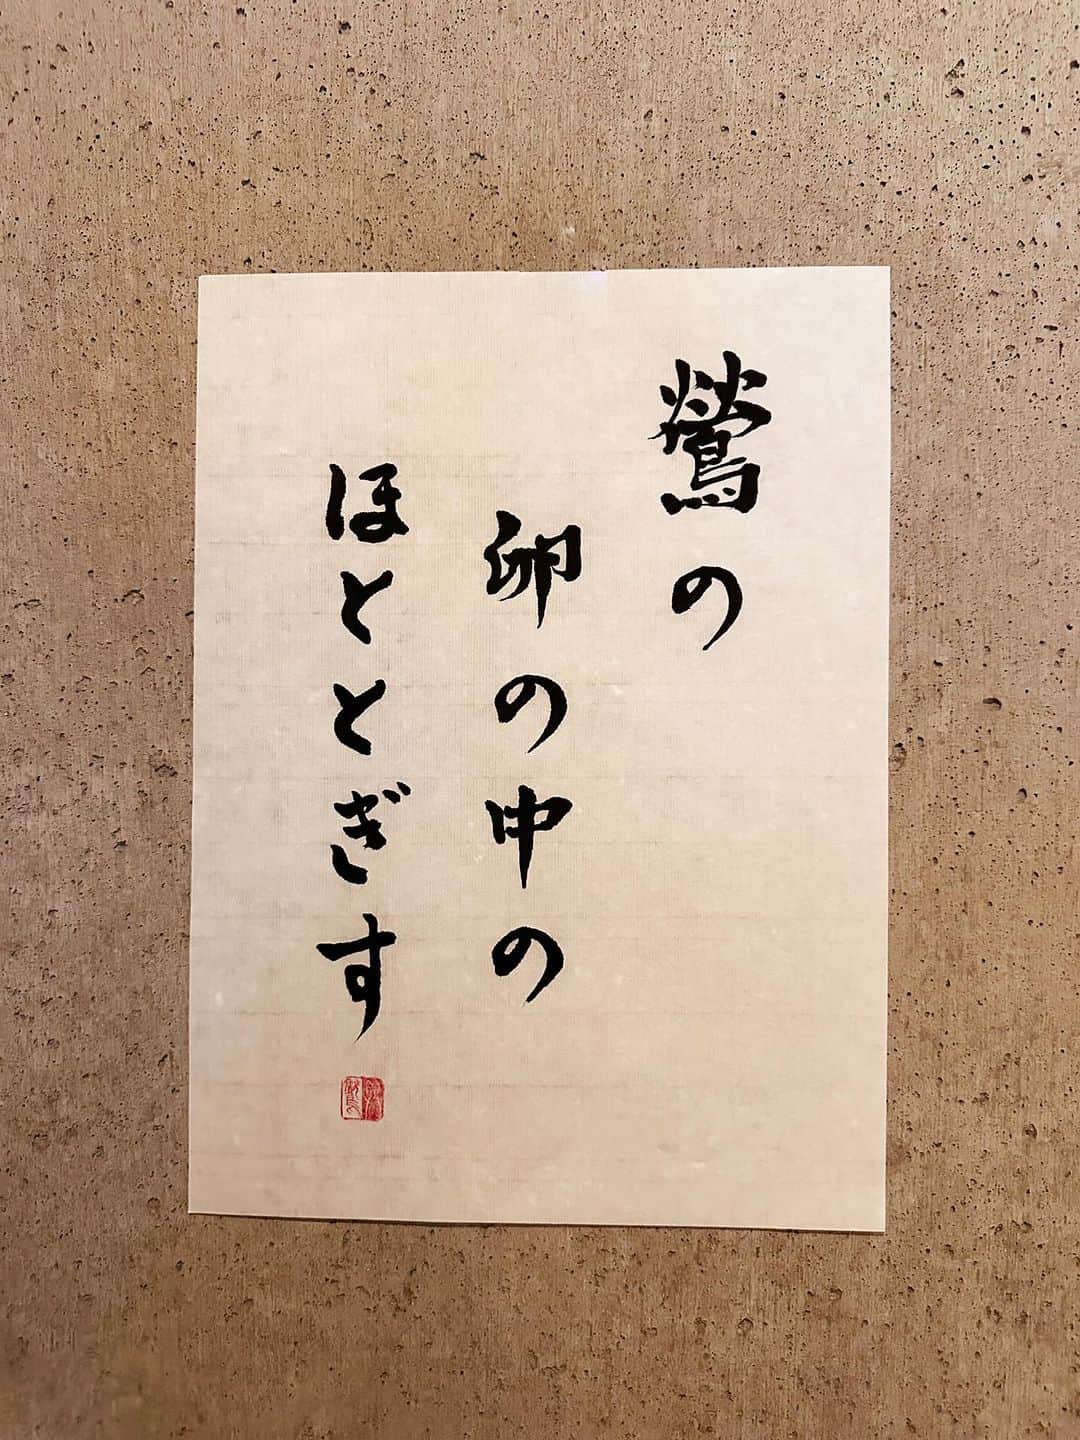 鶯の
卵の中の
ほととぎす